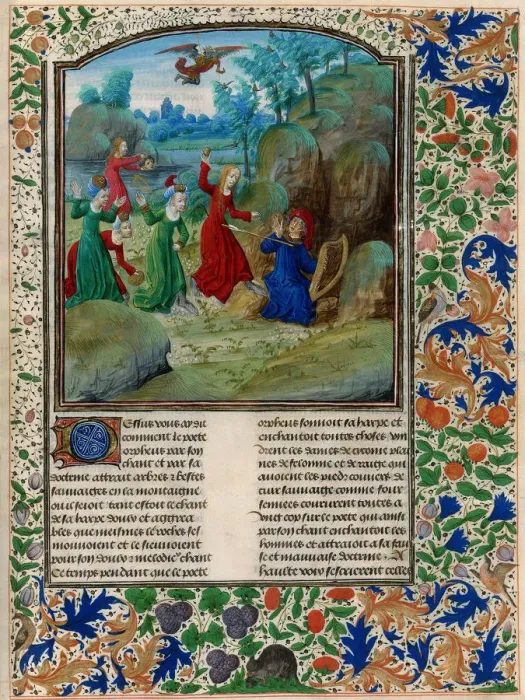 Dessus vous ay dit
comment le poete
orpheus par son
chant et par sa
doctrine attrait arbres & bestes
sauuaiges en la montaigne
ou il seoit tant estoit le chant
de sa harpe doulx et aggrea
bles que mesmes les roches sef
mouuoient et le sieuuoient
pour son doulx & melodieux chant
Ce temps pendant que le poete
orpheus sonnoit sa harpe et
enchantoit toutes choses
les dames de plai
nes de felonnie et de raige qui
auoient les pied couuers de
cuir sauuaige comme four
senees coururent toutes a
coup sur le poete qui ainsi
par son chant enchantoit les
hommes et attraioit a sa faul
se et mauuaise doctrine. A
haulte voix sescrierent celles